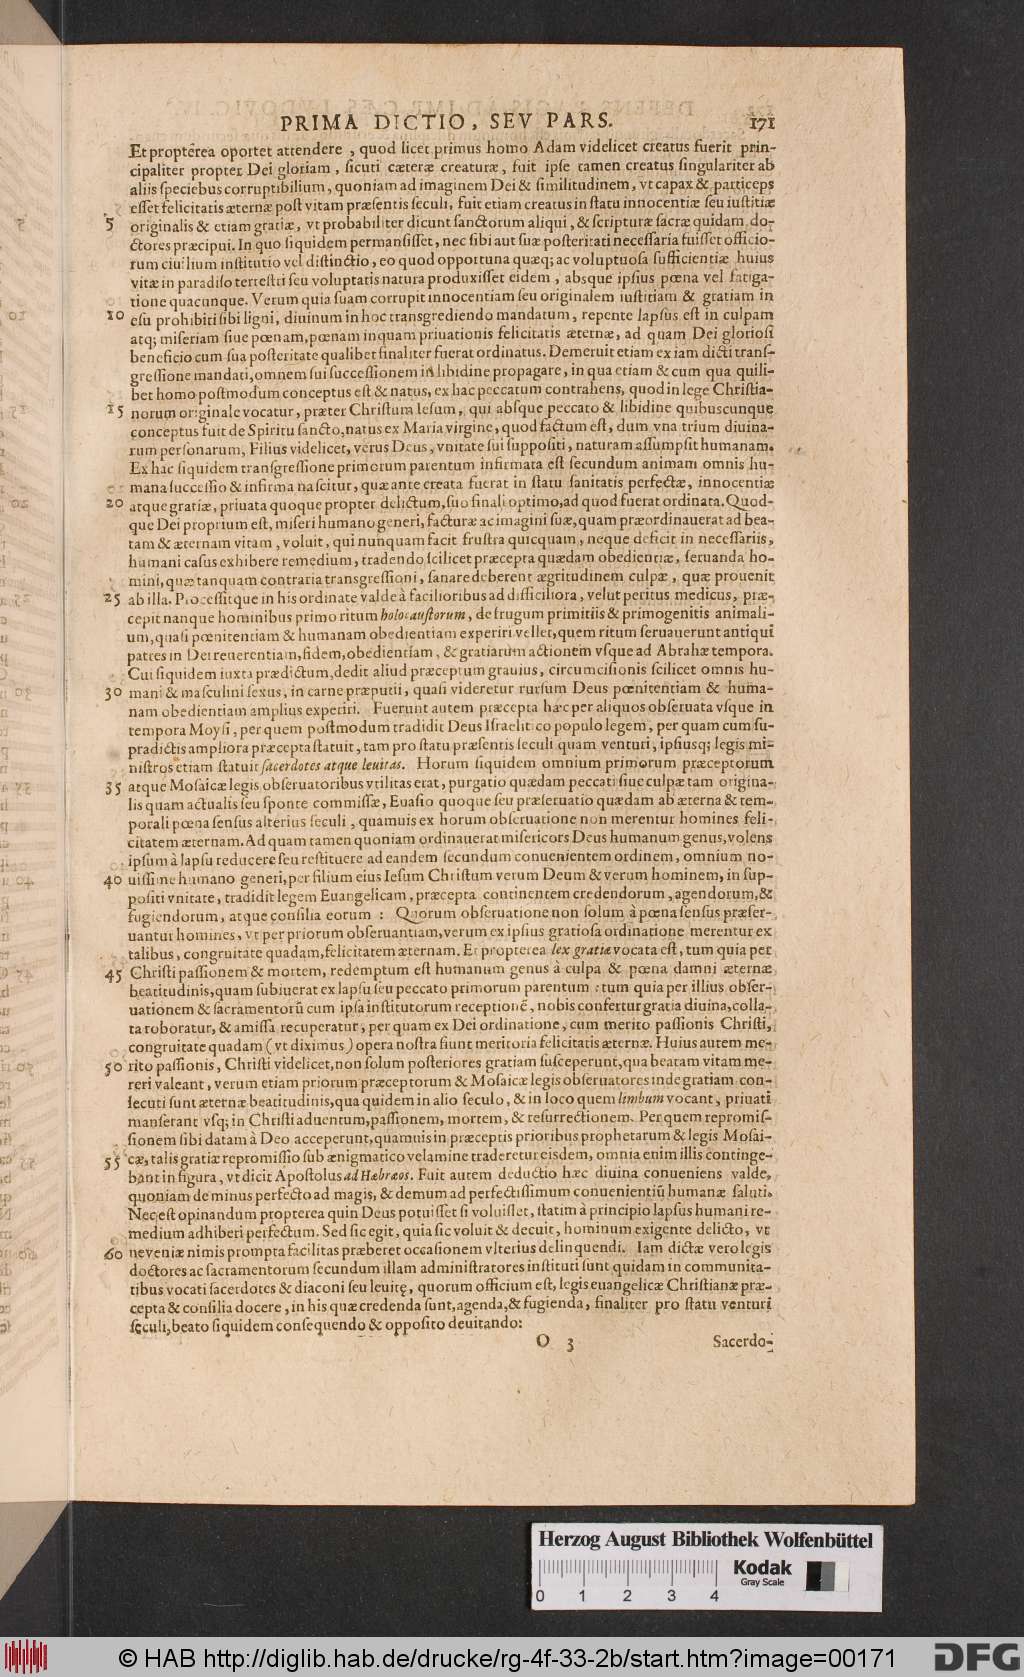 PRIMA DICTIO, SEV PARS. 171
Et propterea oportet attendere, quod licet primus homo Adam videlicet creatus fuerit prin-
cipaliter propter Dei gloriam, sicuti cæteræ creaturæ, fuit ipse tamen creatus singulariter ab
aliis speciebus corruptibilium, quoniam ad imaginem Dei & similitudinem, vt capax & particeps
esset felicitatis æternæ post vitam præsentis seculi, fuit etiam creatus in statu innocentiæ seu iustitiæ
5 originalis & etiam gratiæ, vt probabiliter dicunt sanctorum aliqui, & scripturæ sacræ quidam do-
ctores præcipui. In quo siquidem permansisset, nec sibi aut suæ posteritati necessaria fuisset officio-
rum ciuilium institutio vel distinctio, eo quod opportuna quæq; ac voluptuosa sufficientiæ huius
vitæ in paradiso terrestri seu voluptatis natura produxisset eidem, absque ipsius pœna vel fatiga-
tione quacunque. Verum quia suam corrupit innocentiam seu originalem iustitiam & gratiam in
10 esu prohibiti sibi ligni, diuinum in hoc transgrediendo mandatum, repente lapsus est in culpam
atq; miseriam siue pœnam, pœnam inquam priuationis felicitatis æternæ, ad quam Dei gloriosi
beneficio cum sua posteritate qualibet finaliter fuerat ordinatus. Demeruit etiam ex iam dicti trans-
gressione mandati, omnem sui successionem in libidine propagare, in qua etiam & cum qua quili-
bet homo postmodum conceptus est & natus, ex hac peccatum contrahens, quod in lege Christia-
15 norum originale vocatur, præter Christum Iesum, qui absque peccato & libidine quibuscunque
conceptus fuit de Spiritu sancto, natus ex Maria virgine, quod factum est, dum vna trium diuina-
rum personarum, Filius videlicet, verus Deus, vnitate sui suppositi, naturam assumpsit humanam.
Ex hac siquidem transgressione primorum parentum infirmata est secundum animam omnis hu-
mana successio & infirma nascitur, quæ ante creata fuerat in statu sanitatis perfectæ, innocentiæ
20 atque gratiæ, priuata quoque propter delictum, suo finali optimo, ad quod fuerat ordinata. Quod-
que Dei proprium est, miseri humano generi, facturæ ac imagini suæ, quam præordinauerat ad bea-
tam & æternam vitam, voluit, qui nunquam facit frustra quicquam, neque deficit in necessariis,
humani casus exhibere remedium, tradendo scilicet præcepta quædam obedientiæ, seruanda ho-
mini, quæ tanquam contraria transgressioni, sanare deberent ægritudinem culpæ, quæ prouenit
25 ab illa. Processitque in his ordinate valde à facilioribus ad difficiliora, velut peritus medicus, præ-
cepit nanque hominibus primo ritum holocaustorum, de frugum primitiis & primogenitis animali-
um, quasi pœnitentiam & humanam obedientiam experiri vellet, quem ritum seruauerunt antiqui
patres in Dei reuerentiam, fidem, obedientiam, & gratiarum actionem vsque ad Abrahæ tempora.
Cui siquidem iuxta prædictum, dedit aliud præceptum grauius, circumcisionis scilicet omnis hu-
30 mani & masculini sexus, in carne præputii, quasi videretur rursum Deus pœnitentiam & huma-
nam obedientiam amplius experiri. Fuerunt autem præcepta hæc per aliquos obseruata vsque in
tempora Moysi, per quem postmodum tradidit Deus Israelitico populo legem, per quam cum su-
pradictis ampliora præcepta statuit, tam pro statu præsentis seculi quam venturi, ipsiusq; legis mi-
nistros etiam statuit sacerdotes atque leuitas. Horum siquidem omnium primorum præceptorum
35 atque Mosaicæ legis obseruatoribus vtilitas erat, purgatio quædam peccati siue culpæ tam origina-
lis quam actualis seu sponte commissæ, Euasio quoque seu præseruatio quædam ab æterna & tem-
porali pœna sensus alterius seculi, quamuis ex horum obseruatione non merentur homines feli-
citatem æternam. Ad quam tamen quoniam ordinauerat misericors Deus humanum genus, volens
ipsum à lapsu reducere seu restituere ad eandem secundum conuenientem ordinem, omnium no-
40 uissime humano generi, per filium eius Iesum Christum verum Deum & verum hominem, in sup-
positi vnitate, tradidit legem Euangelicam, præcepta continentem credendorum, agendorum, &
fugiendorum, atque consilia eorum: Quorum obseruatione non solum à pœna sensus præser-
uantur homines, vt per priorum obseruantiam, verum ex ipsius gratiosa ordinatione merentur ex
talibus, congruitate quadam, felicitatem æternam. Et propterea lex gratiæ vocata est, tum quia per
45 Christi passionem & mortem, redemptum est humanum genus à culpa & pœna damni æternæ
beatitudinis, quam subiuerat ex lapsu seu peccato primorum parentum: tum quia per illius obser-
uationem & sacramentorū cum ipsa institutorum receptionē, nobis confertur gratia diuina, colla-
ta roboratur, & amissa recuperatur, per quam ex Dei ordinatione, cum merito passionis Christi,
congruitate quadam (vt diximus) opera nostra fiunt meritoria felicitatis æternæ. Huius autem me-
50 rito passionis, Christi videlicet, non solum posteriores gratiam susceperunt, qua beatam vitam me-
reri valeant, verum etiam priorum præceptorum & Mosaicæ legis obseruatores inde gratiam con-
secuti sunt æternæ beatitudinis, qua quidem in alio seculo, & in loco quem limbum vocant, priuati
manserant vsq; in Christi aduentum, passionem, mortem, & resurrectionem. Per quem repromis-
sionem sibi datam à Deo acceperunt, quamuis in præceptis prioribus prophetarum & legis Mosai-
55 cæ, talis gratiæ repromissio sub ænigmatico velamine traderetur eisdem, omnia enim illis continge-
bant in figura, vt dicit Apostolus ad Hæbraos. Fuit autem deductio hæc diuina conueniens valde,
quoniam de minus perfecto ad magis, & demum ad perfectissimum conuenientiū humanæ saluti.
Nec est opinandum propterea quin Deus potuisset si voluisset, statim à principio lapsus humani re-
medium adhiberi perfectum. Sed sic egit, quia sic voluit & decuit, hominum exigente delicto, vt
60 ne veniæ nimis prompta facilitas præberet occasionem vlterius delinquendi. Iam dictæ vero legis
doctores ac sacramentorum secundum illam administratores instituti sunt quidam in communita-
tibus vocati sacerdotes & diaconi seu leuitę, quorum officium est, legis euangelicæ Christianæ præ-
cepta & consilia docere, in his quæ credenda sunt, agenda, & fugienda, finaliter pro statu venturi
seculi, beato siquidem consequendo & opposito deuitando:
O 3 Sacerdo-
Herzog August Bibliothek Wolfenbüttel
Kodak
Gray Scale
0 1 2 3 4
© HAB http://diglib.hab.de/drucke/rg-4f-33-2b/start.htm?image=00171
DFG